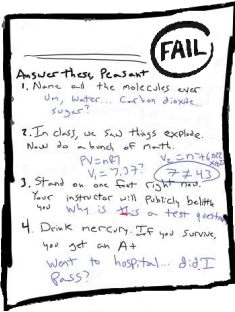 FAIL
Answer these, Peasant
1. Name all the molecules ever
Um, water... Carbon dioxide...
sugar?
2. In class, we saw things explode.
Now do a bunch of math.
PV=nRT
V₁ = 7.37?
7 ≠ 43
3. Stand on one foot right now.
Your instructor will publicly belittle
you Why is this a test question
4. Drink mercury. If you survive,
you get an A+
Went to hospital... did I
pass?